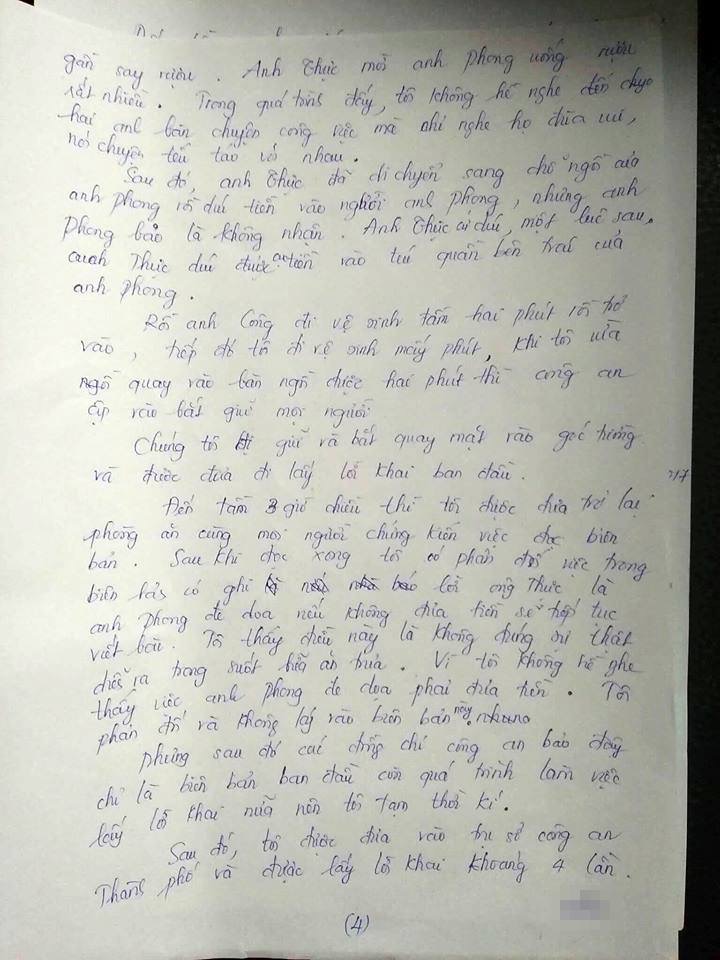 gần say rượu. Anh Thực mời anh Phong uống rượu
rất nhiều. Trong quá trình đấy, tôi không hề nghe đến chuyện
hai anh bàn chuyện công việc mà chỉ nghe họ đùa vui,
nói chuyện tếu táo với nhau.
Sau đó, anh Thực đã di chuyển sang chỗ ngồi của
anh Phong rồi dúi tiền vào người anh Phong, nhưng anh
Phong bảo là không nhận. Anh Thực cứ dúi, một lúc sau,
anh Thực dúi được tiền vào túi quần bên trái của
anh Phong.
Rồi anh Công đi vệ sinh tầm hai phút rồi trở
vào, tiếp đó tôi đi vệ sinh mấy phút, khi tôi vừa
quay vào bàn ngồi được hai phút thì công an
ập vào bắt giữ mọi người
Chúng tôi bị giữ và bắt quay mặt vào góc tường
và được đưa đi lấy lời khai ban đầu.
Đến tầm 3 giờ chiều thì tôi được đưa trở lại
phòng ăn cùng mọi người chứng kiến việc đọc biên
bản. Sau khi đọc xong tôi có phản đối việc trong
biên bản có ghi lời ông Thực là
anh Phong đe dọa nếu không đưa tiền sẽ tiếp tục
viết bài. Tôi thấy điều này là không đúng sự thật
diễn ra trong suốt bữa ăn trưa. Vì tôi không hề nghe
thấy việc anh Phong đe dọa phải đưa tiền. Tôi
phản đối và không ký vào biên bản này nhưng
Nhưng sau đó các đồng chí công an bảo đây
chỉ là biên bản ban đầu còn quá trình làm việc
lấy lời khai nữa nên tôi tạm thời kí.
Sau đó, tôi được đưa vào trụ sở công an
Thành phố và được lấy lời khai khoảng 4 lần.
(4)